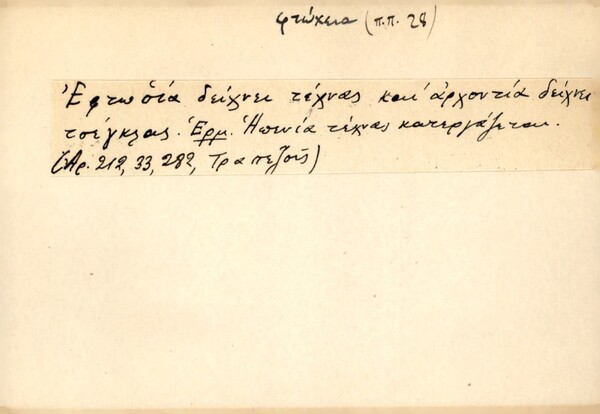 φτώχεια (π.π. 28)
Ἐ φτωσ̌ία δείχνει τέχνας και ἀρχοντία δείχνει
τσέγκλας. Ἑρμ. Ἡ πενία τέχνας κατεργάζεται.
(Ἀρ. 212, 33, 282, Τραπεζοῦς)